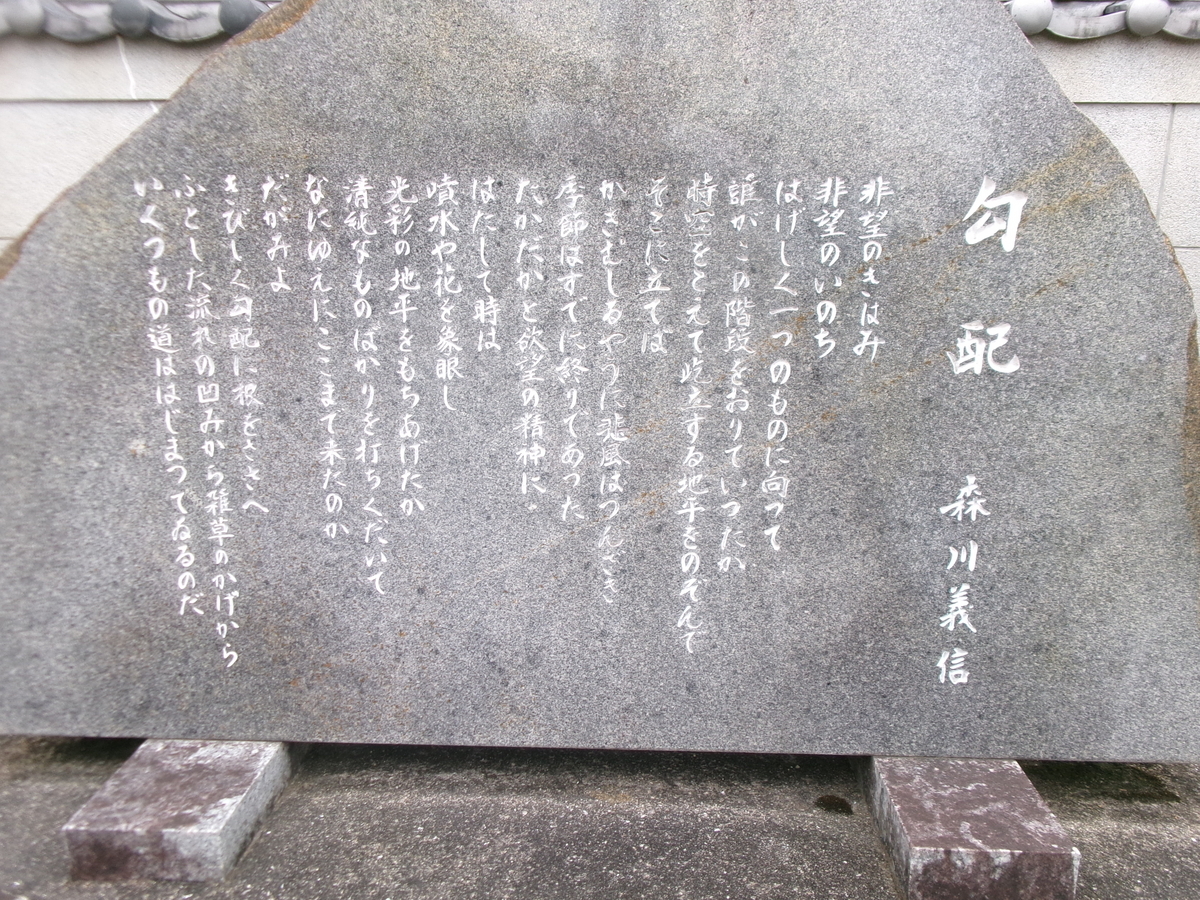 勾配
森川義信
非望のきはみ
非望のいのち
はげしく一つのものに向つて
誰がこの階段をおりていつたか
時空をこえて屹立する地平をのぞんで
そこに立てば
かきむしるやうに悲風はつんざき
季節はすでに終りであつた
たかだかと欲望の精神に
はたして時は
噴水や花を象眼し
光彩の地平をもちあげたか
清純なものばかりを打ちくだいて
なにゆえにここまで来たのか
だがみよ
きびしく勾配に根をささへ
ふとした流れの凹みから雑草のかげから
いくつもの道ははじまつてゐるのだ